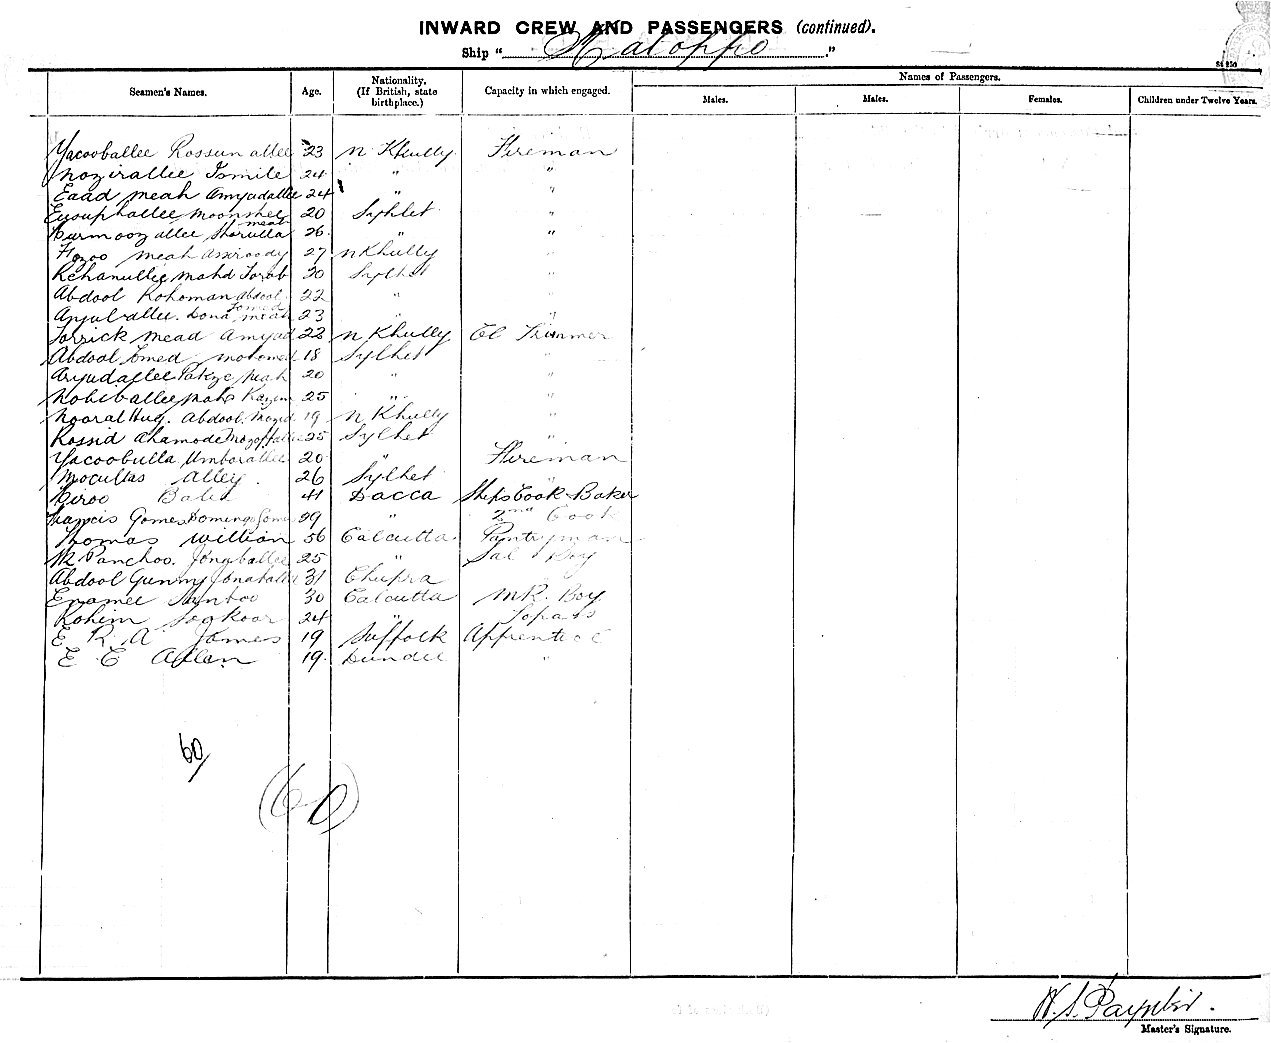 INWARD CREW AND PASSENGERS (continued).
Ship " Matoppo ."
Seamen's Names. Age. Nationality. (If British, state birthplace.) Capacity in which engaged. Names of Passengers.
Males. Males. Females. Children under Twelve Years.
Yacooballee Rossun allee 23 N Khully Fireman
Nozirallee Tomile 24 " "
Eaad meah Amjudallee 24 " "
Eusuphallee Moonshee 20 Syhlet "
Hurmooz allee Sharulla meah 26 " "
Fozoo meah Assiroody 27 N Khully "
Rehanullie Mahd Torab 20 Sylhet "
Abdool Rohoman Abdool 22 " "
Dona meah 23 " "
Torrick mead Amjad 22 N Khully El Trimmer
Abdool Omed Mohomed 18 Sylhet "
Arjudallee Pakze Meah 20 " "
Nobiballee Maho 25 " "
Nooral Huq. Abdool Mozid 19 N Khully "
Rossid Ahamode 25 Sylhet "
Yacoobulla Umborallee 20 " Fireman
Mocullas Alley 26 Sylhet "
41 Dacca Ships Cook & Baker
Francis Gomes Domingo Gomes 29 " 2nd Cook
Thomas William 56 Calcutta Pantryman
Panchoo. Jonaballee 25 " Sal Boy
Abdool Gunny Jonaballee 31 Chupra
Enamee 30 Calcutta MR. Boy
Rohim 24 " Topass
E R A James 19 Suffolk Apprentice
E E Allan 19 Dundee "
60
(60)
Master's Signature.